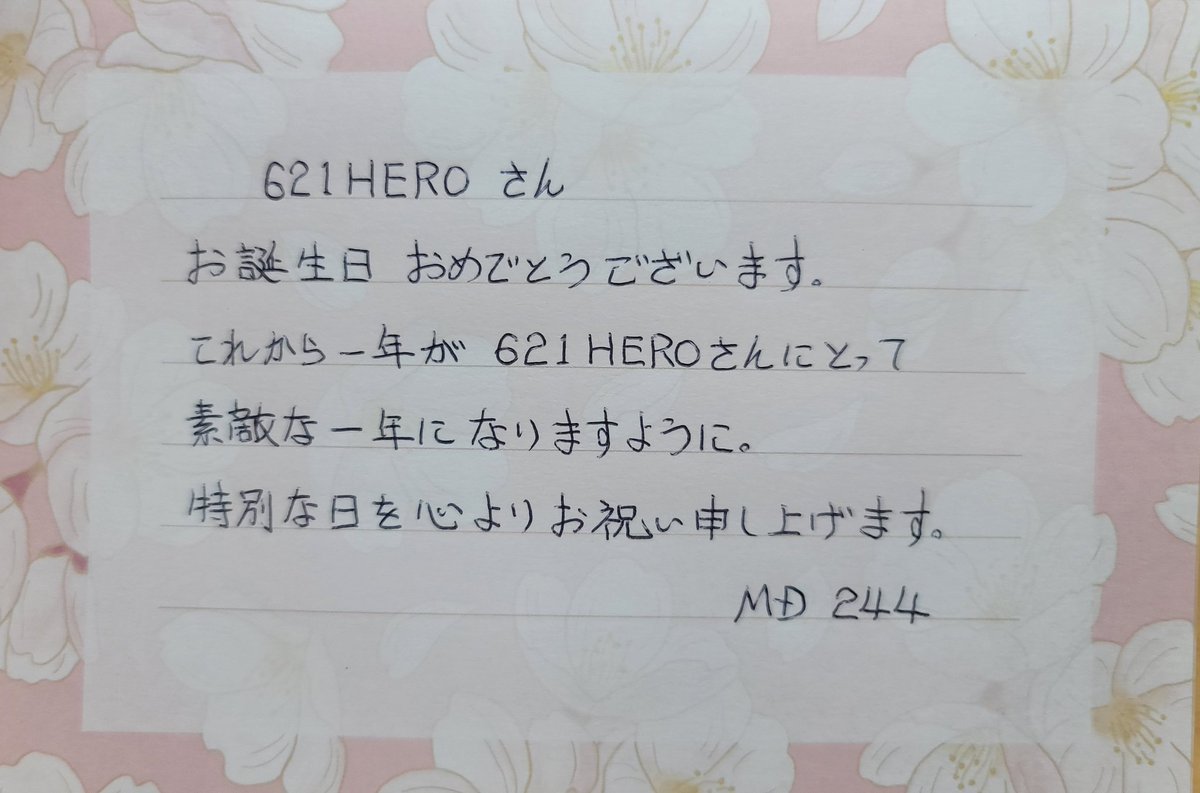 621HERO さん
お誕生日 おめでとうございます。
これから一年が 621HEROさんにとって
素敵な一年になりますように。
特別な日を心よりお祝い申し上げます。
MD 244